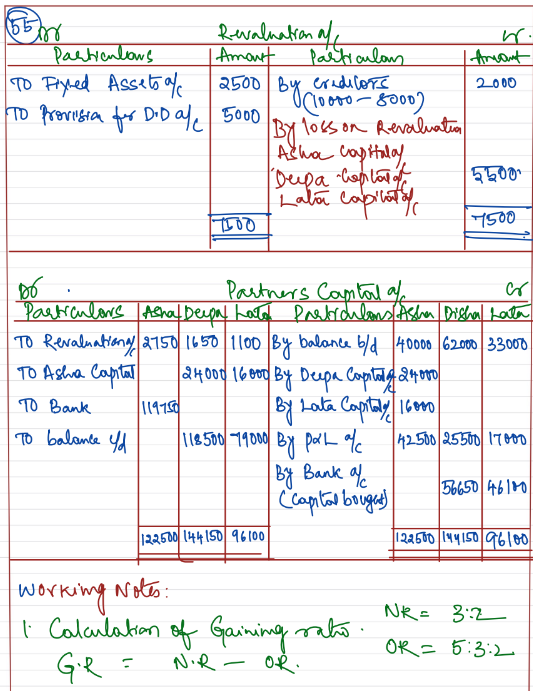 55
Dr Revaluation a/c Cr.
Particulars Amount Particulars Amount
TO Fixed Assets a/c 2500 By creditors 2000
(10000 - 8000)
TO Provision for D.D a/c 5000
By loss on Revaluation
Asha capital a/c
Deepa capital a/c 5500
Lata capital a/c
7500 7500
Dr Partners Capital a/c Cr
Particulars Asha Deepa Lata Particulars Asha Disha Lata
To Revaluation a/c 2750 1650 1100 By balance b/d 40000 62000 33000
To Asha Capital 24000 16000 By Deepa Capital a/c 24000
TO Bank 119750 By Lata Capital a/c 16000
To balance c/d 118500 79000 By P&L a/c 42500 25500 17000
By Bank a/c 56650 46100
(Capital bought)
122500 144150 96100 122500 144150 96100
Working Notes:
1. Calculation of Gaining ratio. NR = 3:2
G.R = N.R - O.R. OR = 5:3:2